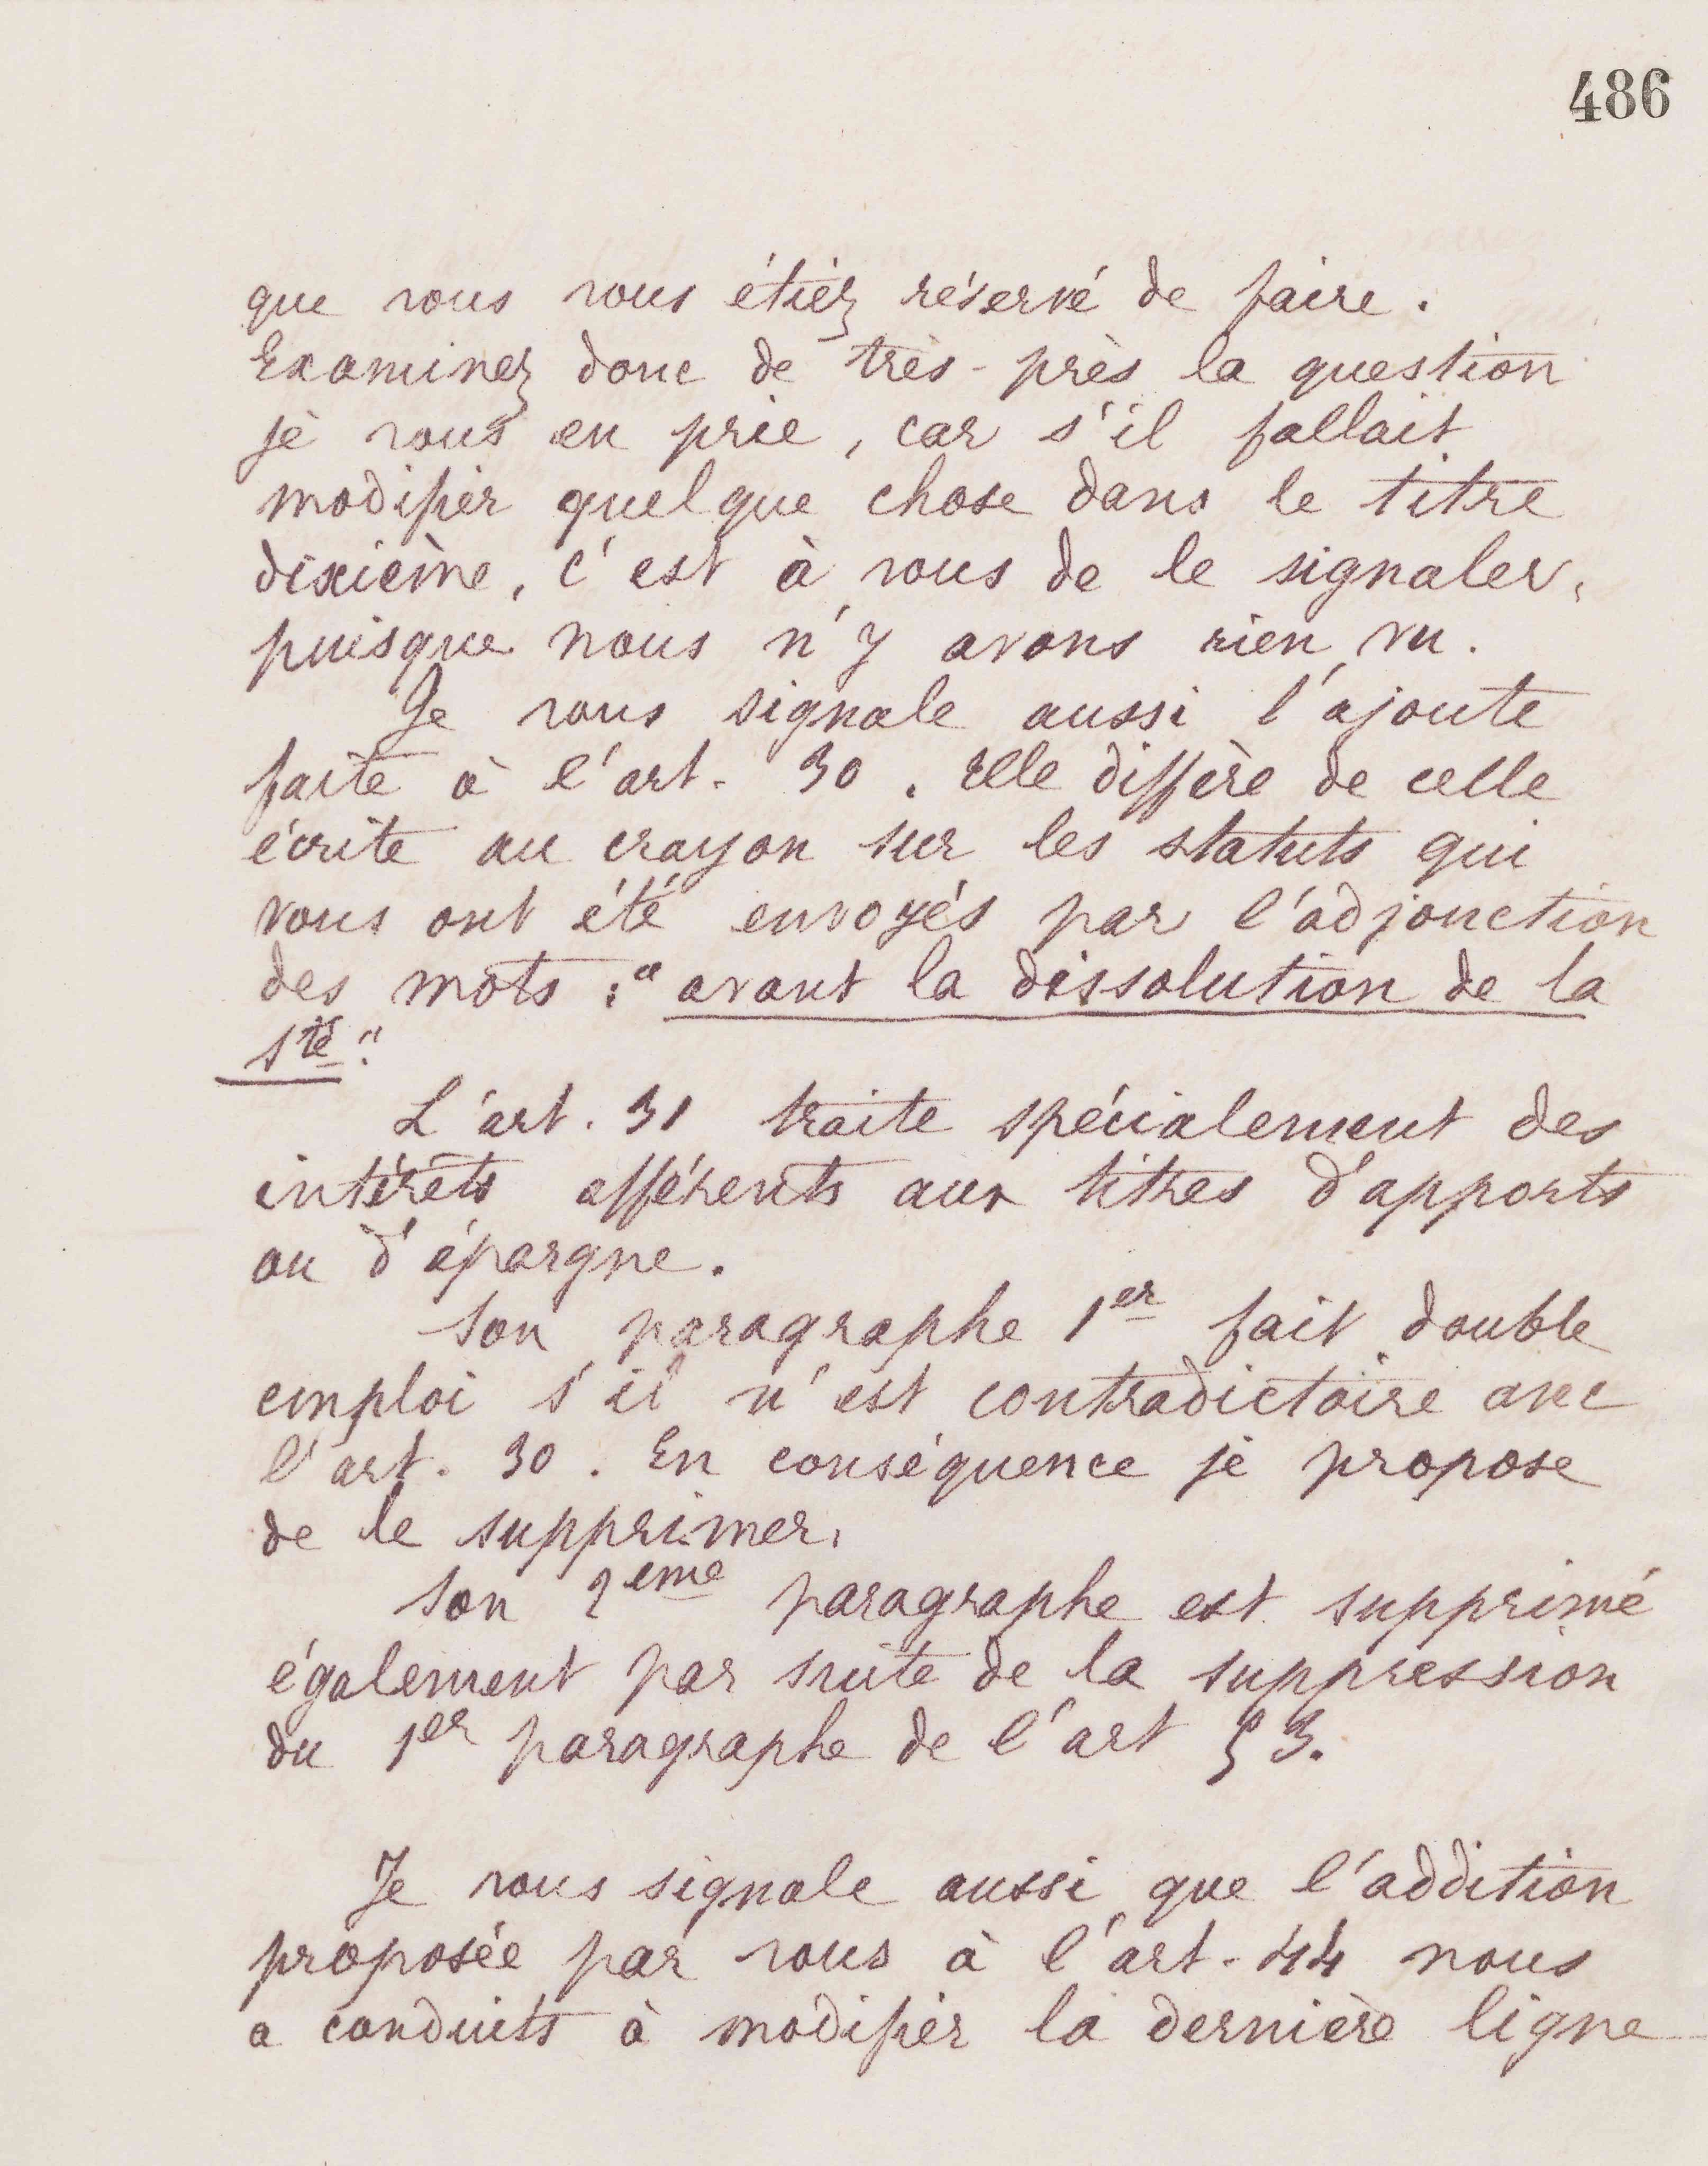 486
que vous vous étiez réservé de faire.
Examinez donc de très-près la question
je vous en prie, car s'il fallait
modifier quelque chose dans le titre
dixième, c'est à vous de le signaler,
puisque nous n'y avons rien vu.
Je vous signale aussi l'ajoute
faite à l'art. 30. Elle diffère de celle
écrite au crayon sur les statuts qui
vous ont été envoyés par l'adjonction
des mots : " avant la dissolution de la
Sté ".
L'art. 31 traite spécialement des
intérêts afférents aux titres d'apports
ou d'épargne.
Son paragraphe 1er fait double
emploi s'il n'est contradictoire avec
l'art. 30. En conséquence je propose
de le supprimer.
Son 2eme paragraphe est supprimé
également par suite de la suppression
du 1er paragraphe de l'art 53.
Je vous signale aussi que l'addition
proposée par vous à l'art. 44 nous
a conduits à modifier la dernière ligne